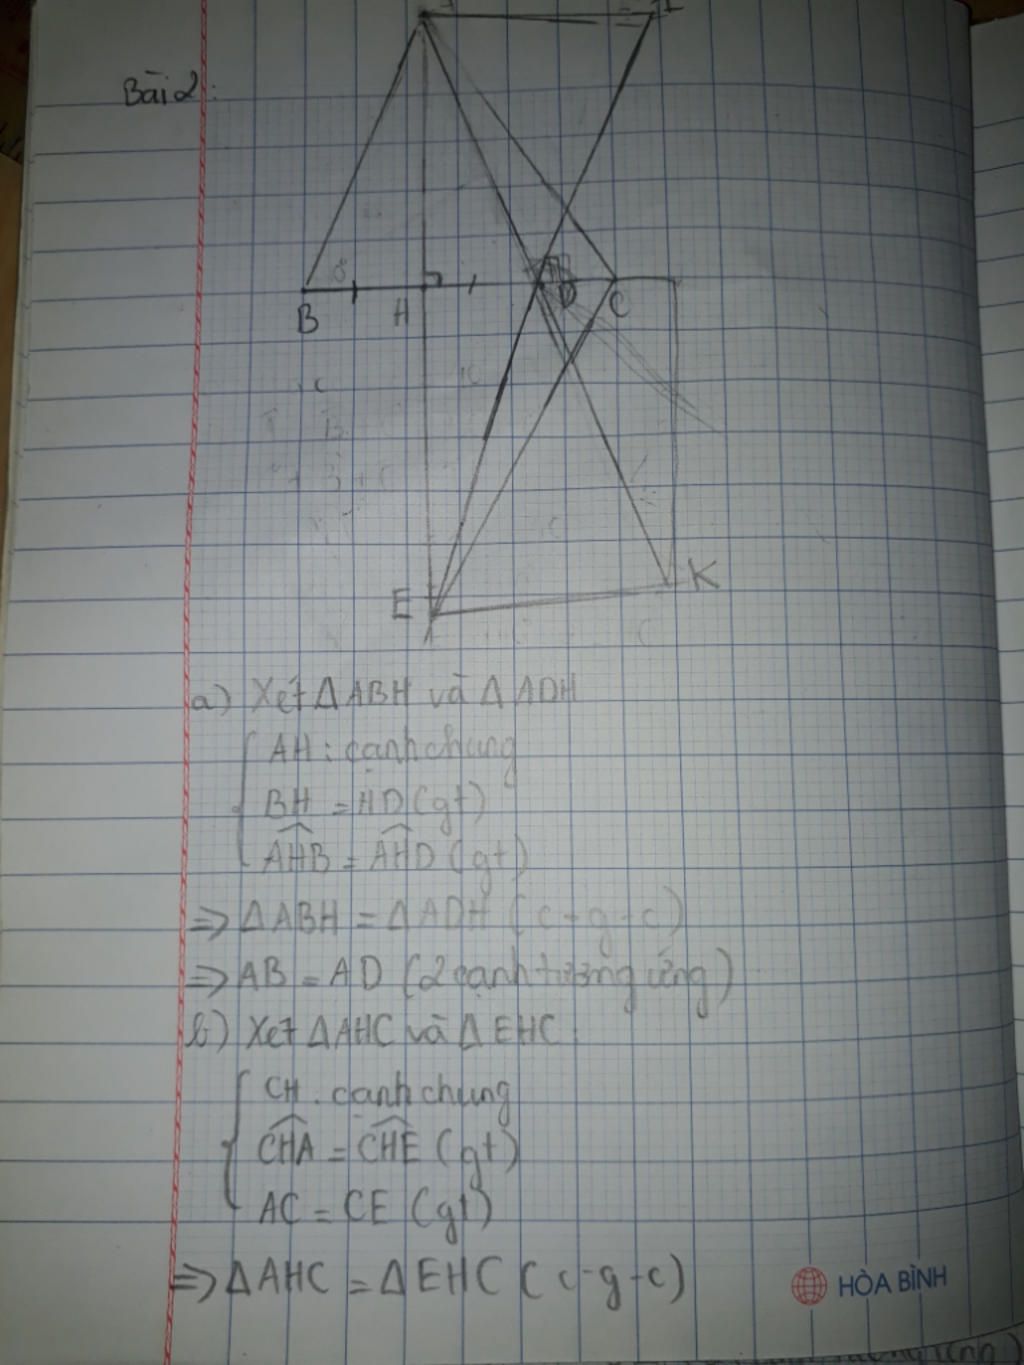 Bài 2:
I
B
H
D
C
E
K
a) Xét ΔABH và ΔADH
AH : cạnh chung
BH = HD (gt)
$\widehat{AHB}$ = $\widehat{AHD}$ (gt)
=> ΔABH = ΔADH (c-g-c)
=> AB = AD (2 cạnh tương ứng)
b) Xét ΔAHC và ΔEHC :
CH : cạnh chung
$\widehat{CHA}$ = $\widehat{CHE}$ (gt)
AC = CE (gt)
=> ΔAHC = ΔEHC (c-g-c)
HÒA BÌNH